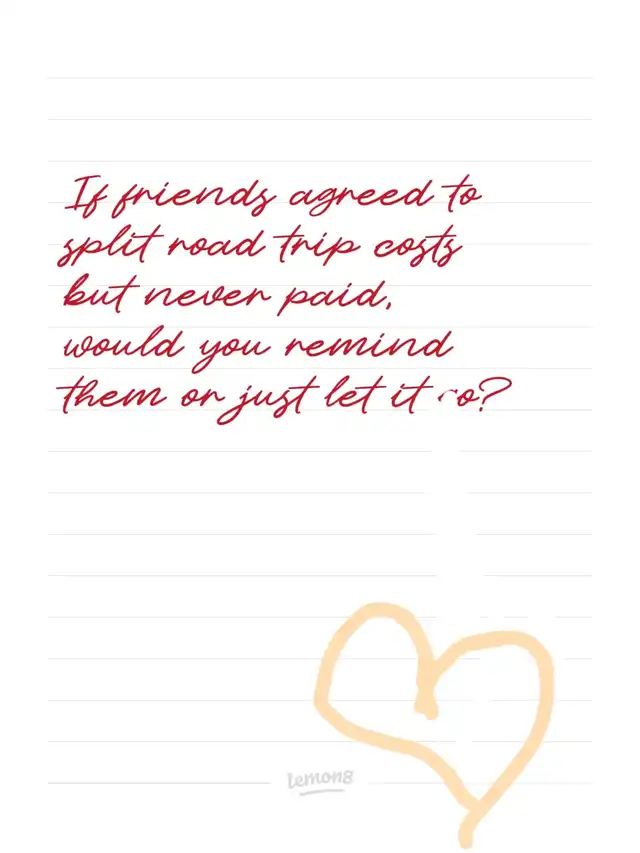 If friends agreed to
split road trip costs
but never paid,
would you remind
them or just let it
lemon8